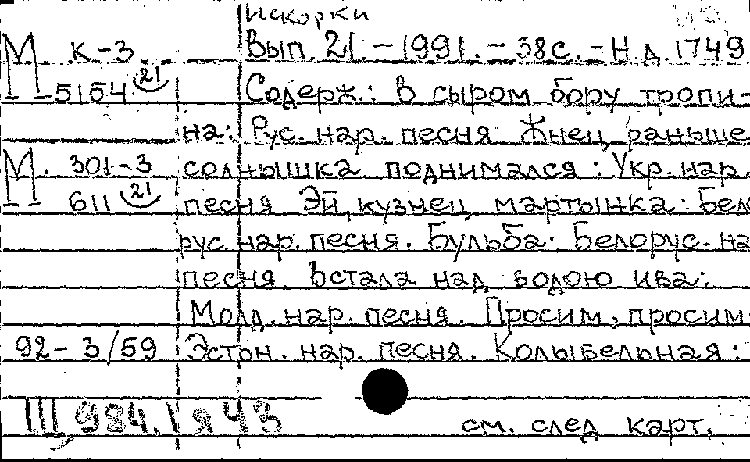 Искорки
М К-3 Вып 21 - 1991. - 38с. - Н д 1749
5154 21 Содерж.: В сыром бору тропи-
на: Рус. нар. песня Жнец, раньше
М. 301-3 солнышка поднимался: Укр. нар.
611 21 песня Эй, кузнец, мартынка: Бел
рус. нар. песня. Бульба: Белорус. на
песня. Встала над водою ива:
Молд. нар. песня. Просим, просим:
92-3/59 Эстон. нар. песня. Колыбельная:
Ш,984.1я43 см. след карт.